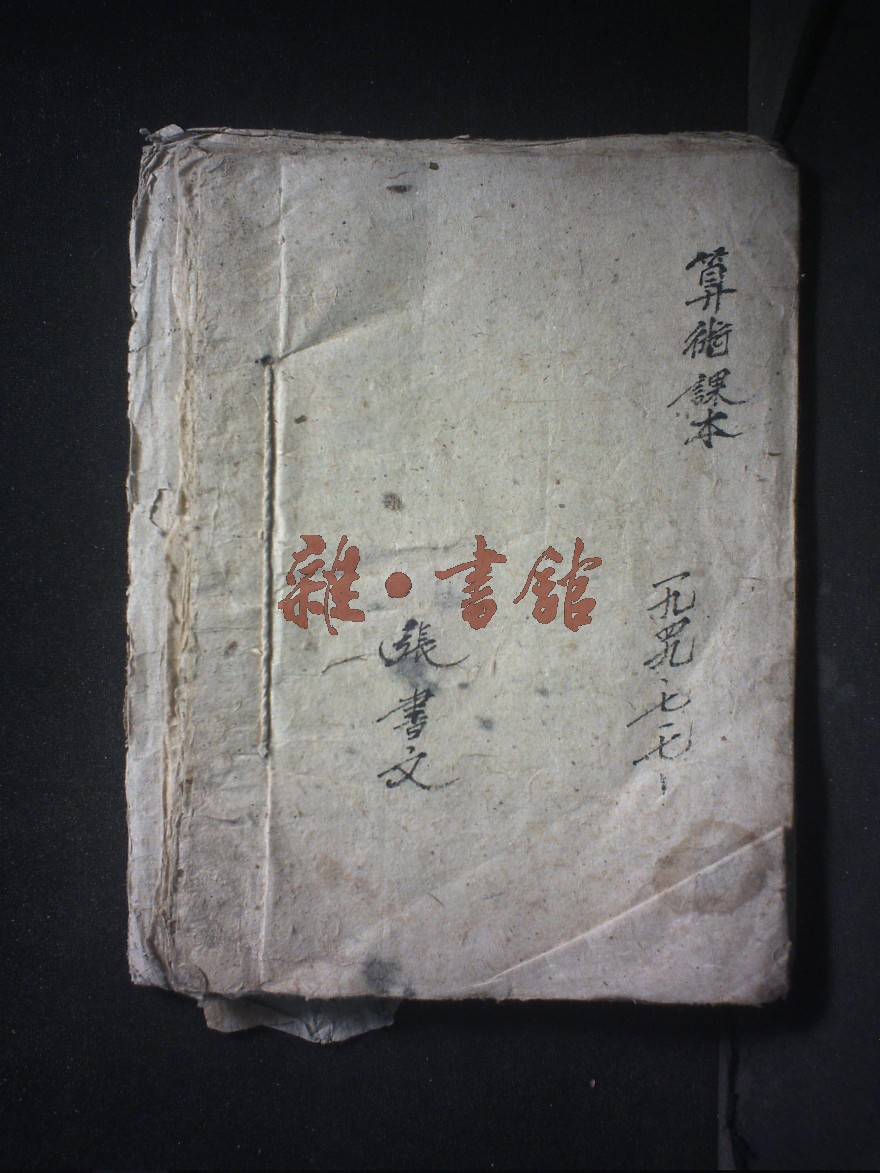 算術課本
一九四九、七、一七、
張書文
雜·書館